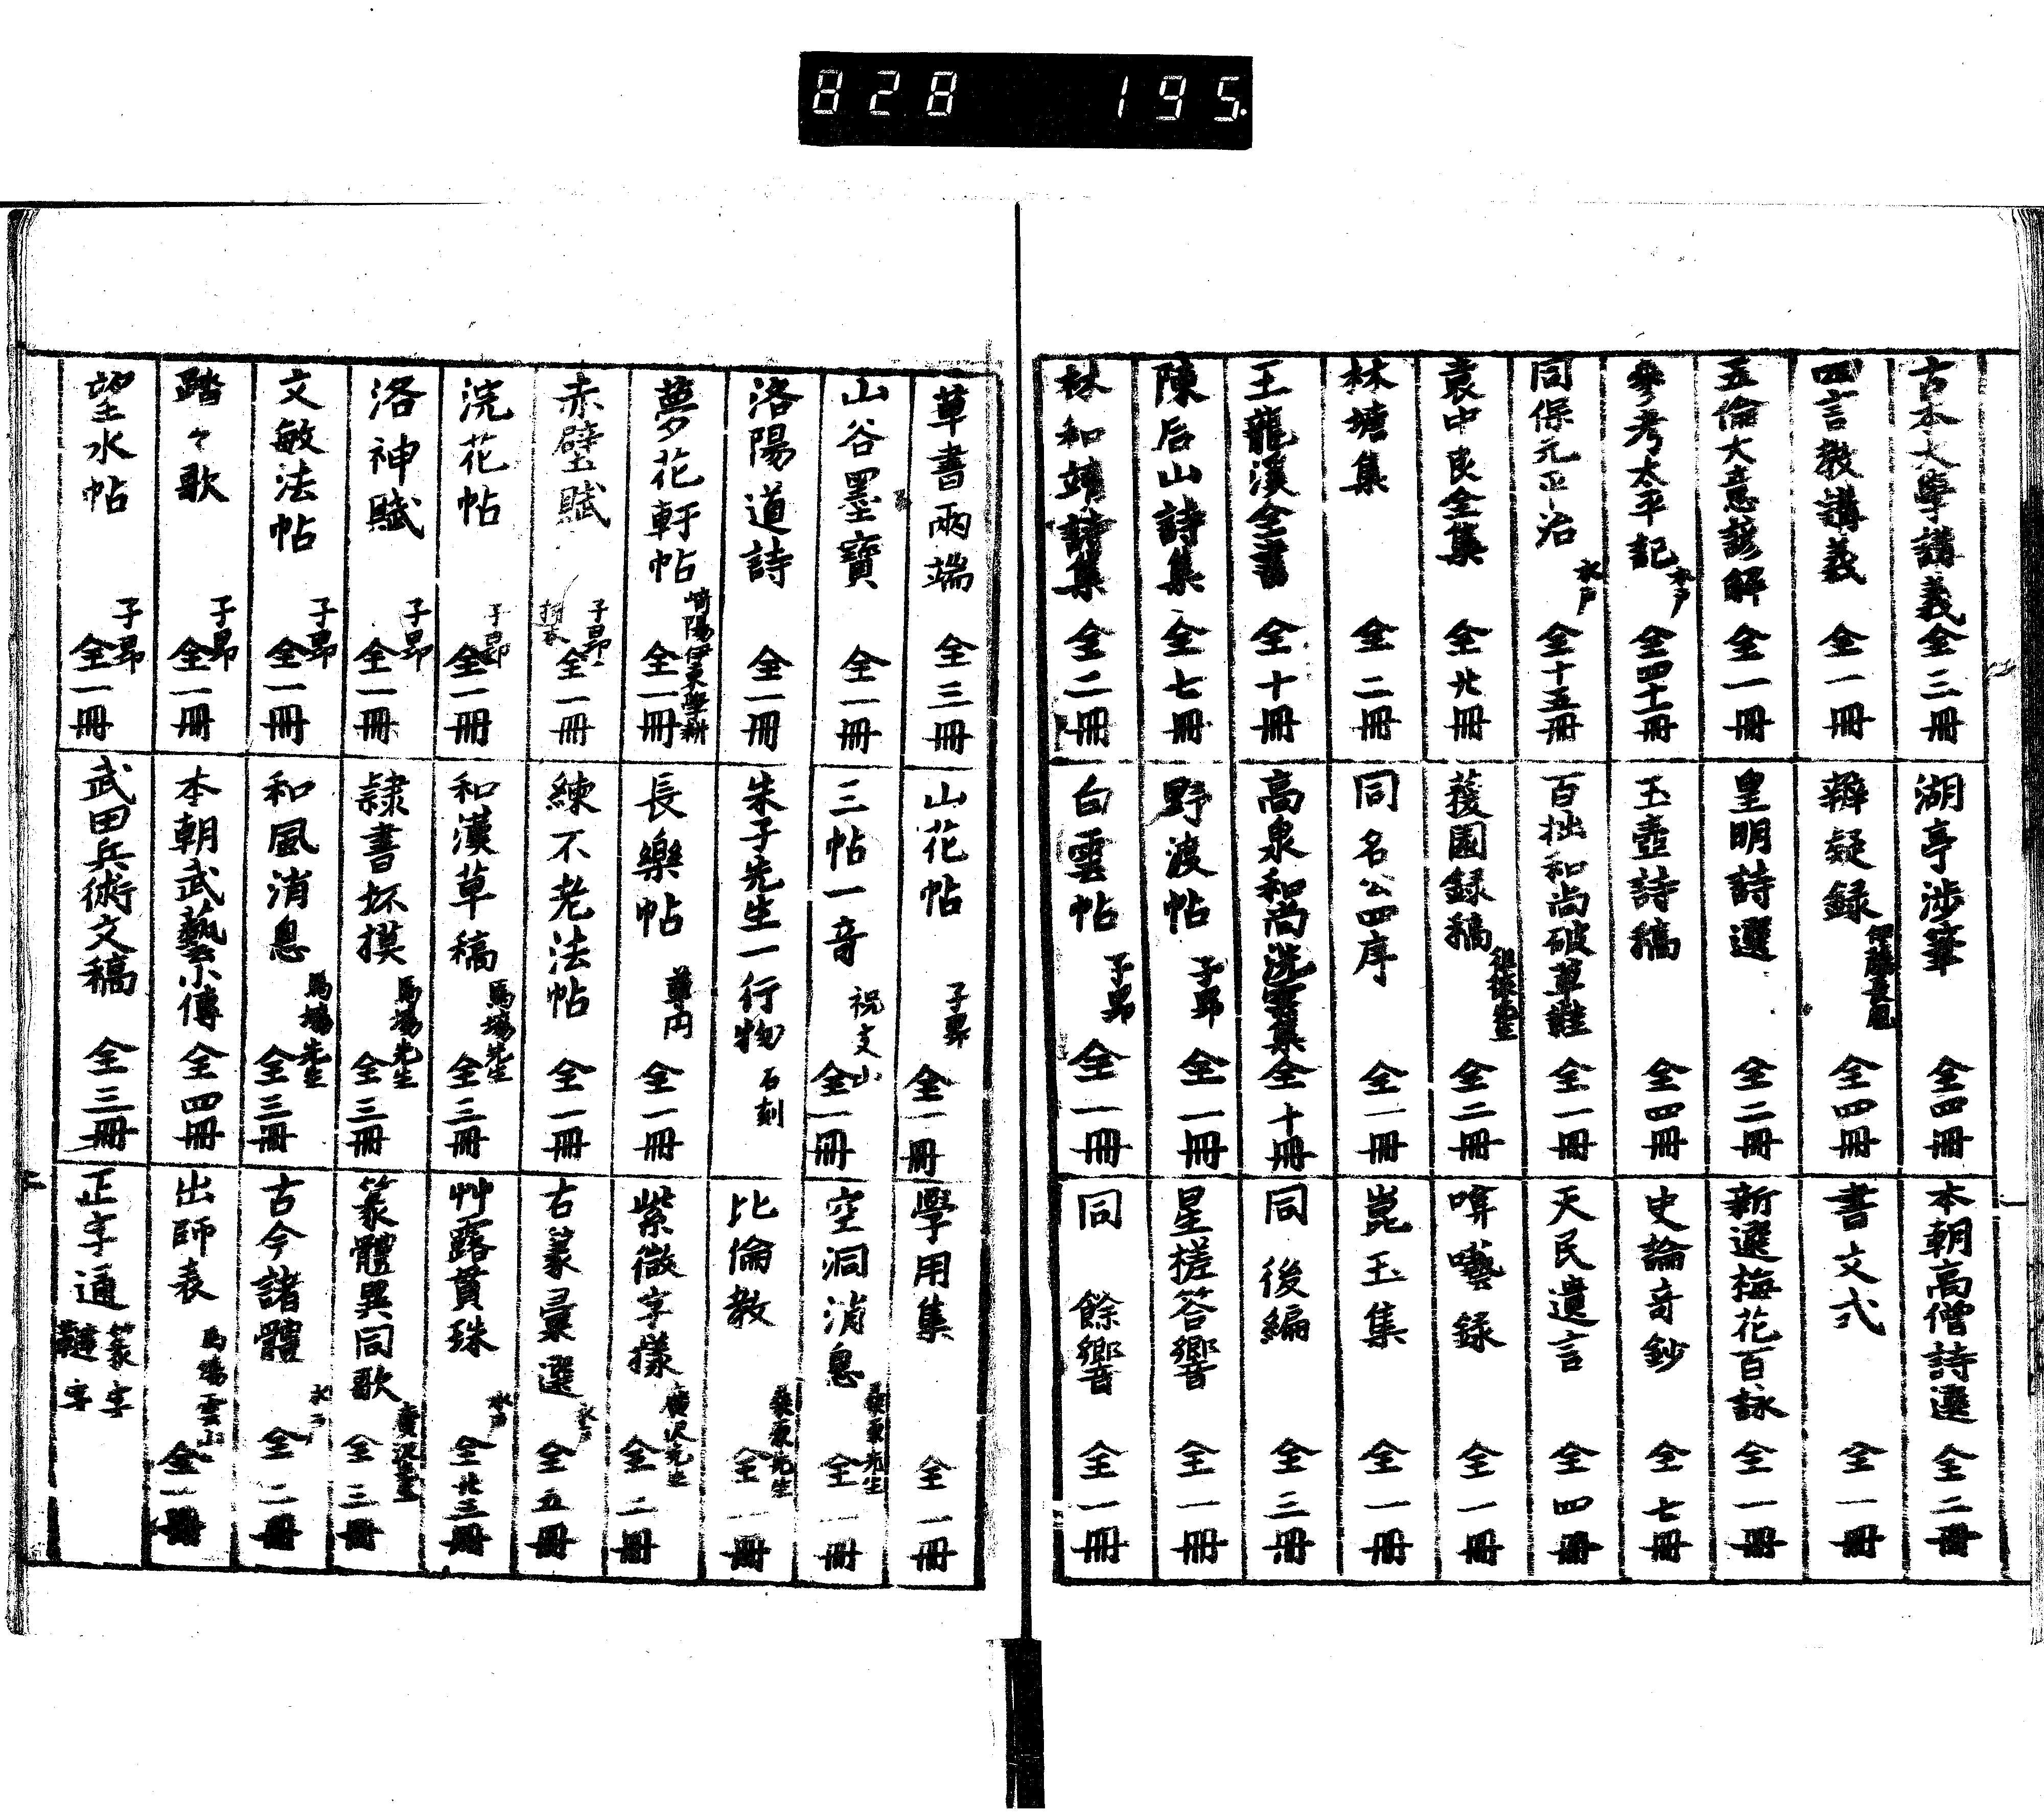 828 195.
古本大學講義 全三冊
四言教講義 全一冊
五倫大意諺解 全一冊
參考太平記 水戸 全四十一冊
同保元平治 水戸 全十五冊
袁中良全集 全廿冊
林塘集 全二冊
王龍溪全書 全十冊
陳后山詩集 全七冊
林和靖詩集 全二冊
湖亭渉筆 全四冊
辨疑録 伊藤長胤 全四冊
皇明詩選 全二冊
玉壺詩稿 全四冊
百拙和尚破草鞋 全一冊
蘐園録稿 徂徠先生 全二冊
同名公四序 全一冊
高泉和尚洗雲集 全十冊
野渡帖 子昂 全一冊
白雲帖 子昂 全一冊
本朝高僧詩選 全二冊
書文式 全一冊
新選梅花百詠 全一冊
史論奇鈔 全七冊
天民遺言 全四冊
唪囈録 全一冊
崑玉集 全一冊
同後編 全三冊
星槎答響 全一冊
同餘響 全一冊
草書兩端 全三冊
山谷墨寶 全一冊
洛陽道詩 全一冊
夢花軒帖 崎陽伊東學耕 全一冊
赤壁賦 子昂 全一冊
浣花帖 子昂 全一冊
洛神賦 子昂 全一冊
文敏法帖 子昂 全一冊
踏々歌 子昂 全一冊
望水帖 子昂 全一冊
山花帖 子昂 全一冊
三帖一音 祝支山 全一冊
朱子先生一行物 石刻
長樂帖 尊円 全一冊
練不老法帖 全一冊
和漢草稿 馬場先生 全三冊
隷書坏摸 馬場先生 全三冊
和風消息 馬場先生 全三冊
本朝武藝小傳 全四冊
武田兵術文稿 全三冊
學用集 全一冊
空洞消息 桑原先生 全一冊
比倫教 桑原先生 全一冊
紫微字樣 廣沢先生 全二冊
古篆彙選 水戸 全五冊
艸露貫珠 水戸 全廿三冊
篆體異同歌 廣沢先生 全三冊
古今諸體 水戸 全二冊
出師表 馬場雲山 全一冊
正字通 篆字 韃字